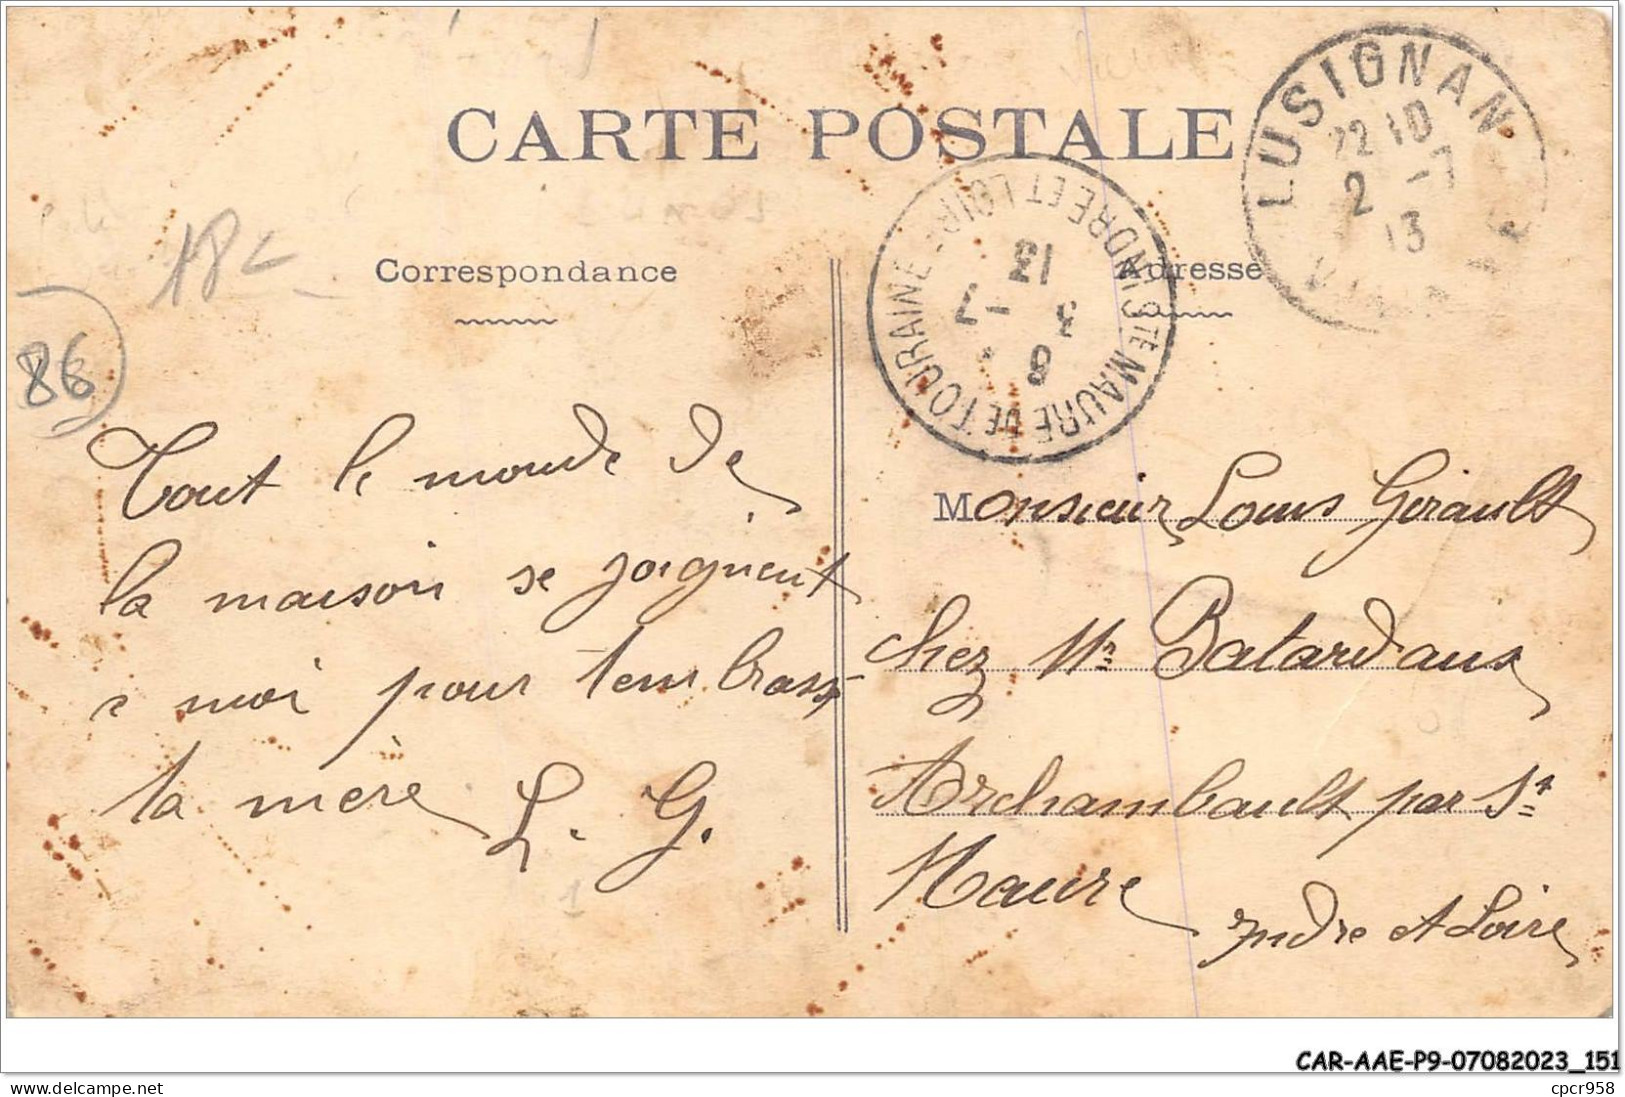 CARTE POSTALE
LUSIGNAN
22 10
2 -7
13
Correspondance
Adresse
STE MAURE DE TOURAINE - INDRE ET LOIRE
8
3 -7
13
18
86
Tout le monde de
la maison se joignent
a moi pour t'embrass
ta mère L. G.
Monsieur Louis Girault
Chez Mr Batardaux
Archambault par St
Maure
Indre et Loire
1
CAR-AAE-P9-07082023_151
www.delcampe.net
cpcr958